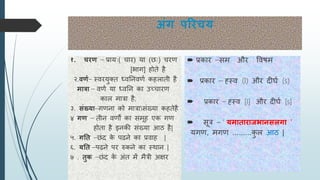 अंग परिचय
१. चरण – प्राय:( चार) या (छ:) चरण
[भाग] होते है
२.वर्ण- स्वरयुक्त ध्वनिवर्ण कहलाती है
मात्रा – वर्ण या ध्वनि का उच्चारण
काल मात्रा है;
३. संख्या-गणना को मात्रासंख्या कहतेहैं
४ गण – तीन वर्णों का समूह एक गण
होता है इनकी संख्या आठ है|
५. गति –छंद के पढने का प्रवाह |
६. यति –पढ़ने पर रुकने का स्थान |
७ . तुक –छंद के अंत में मैत्री अक्षर
प्रकार -सम और विषम
प्रकार – ह्स्व (I) और दीर्घ (S)
प्रकार – ह्स्व [I] और दीर्घ [S]
सूत्र – ' यमाताराजभानसलगा '
यगण, मगण .........कुल आठ |